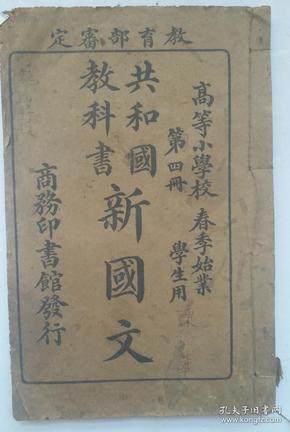 教育部審定
高等小學校 春季始業
第四冊 學生用
共和國
教科書
新國文
商務印書館發行
孔夫子旧书网